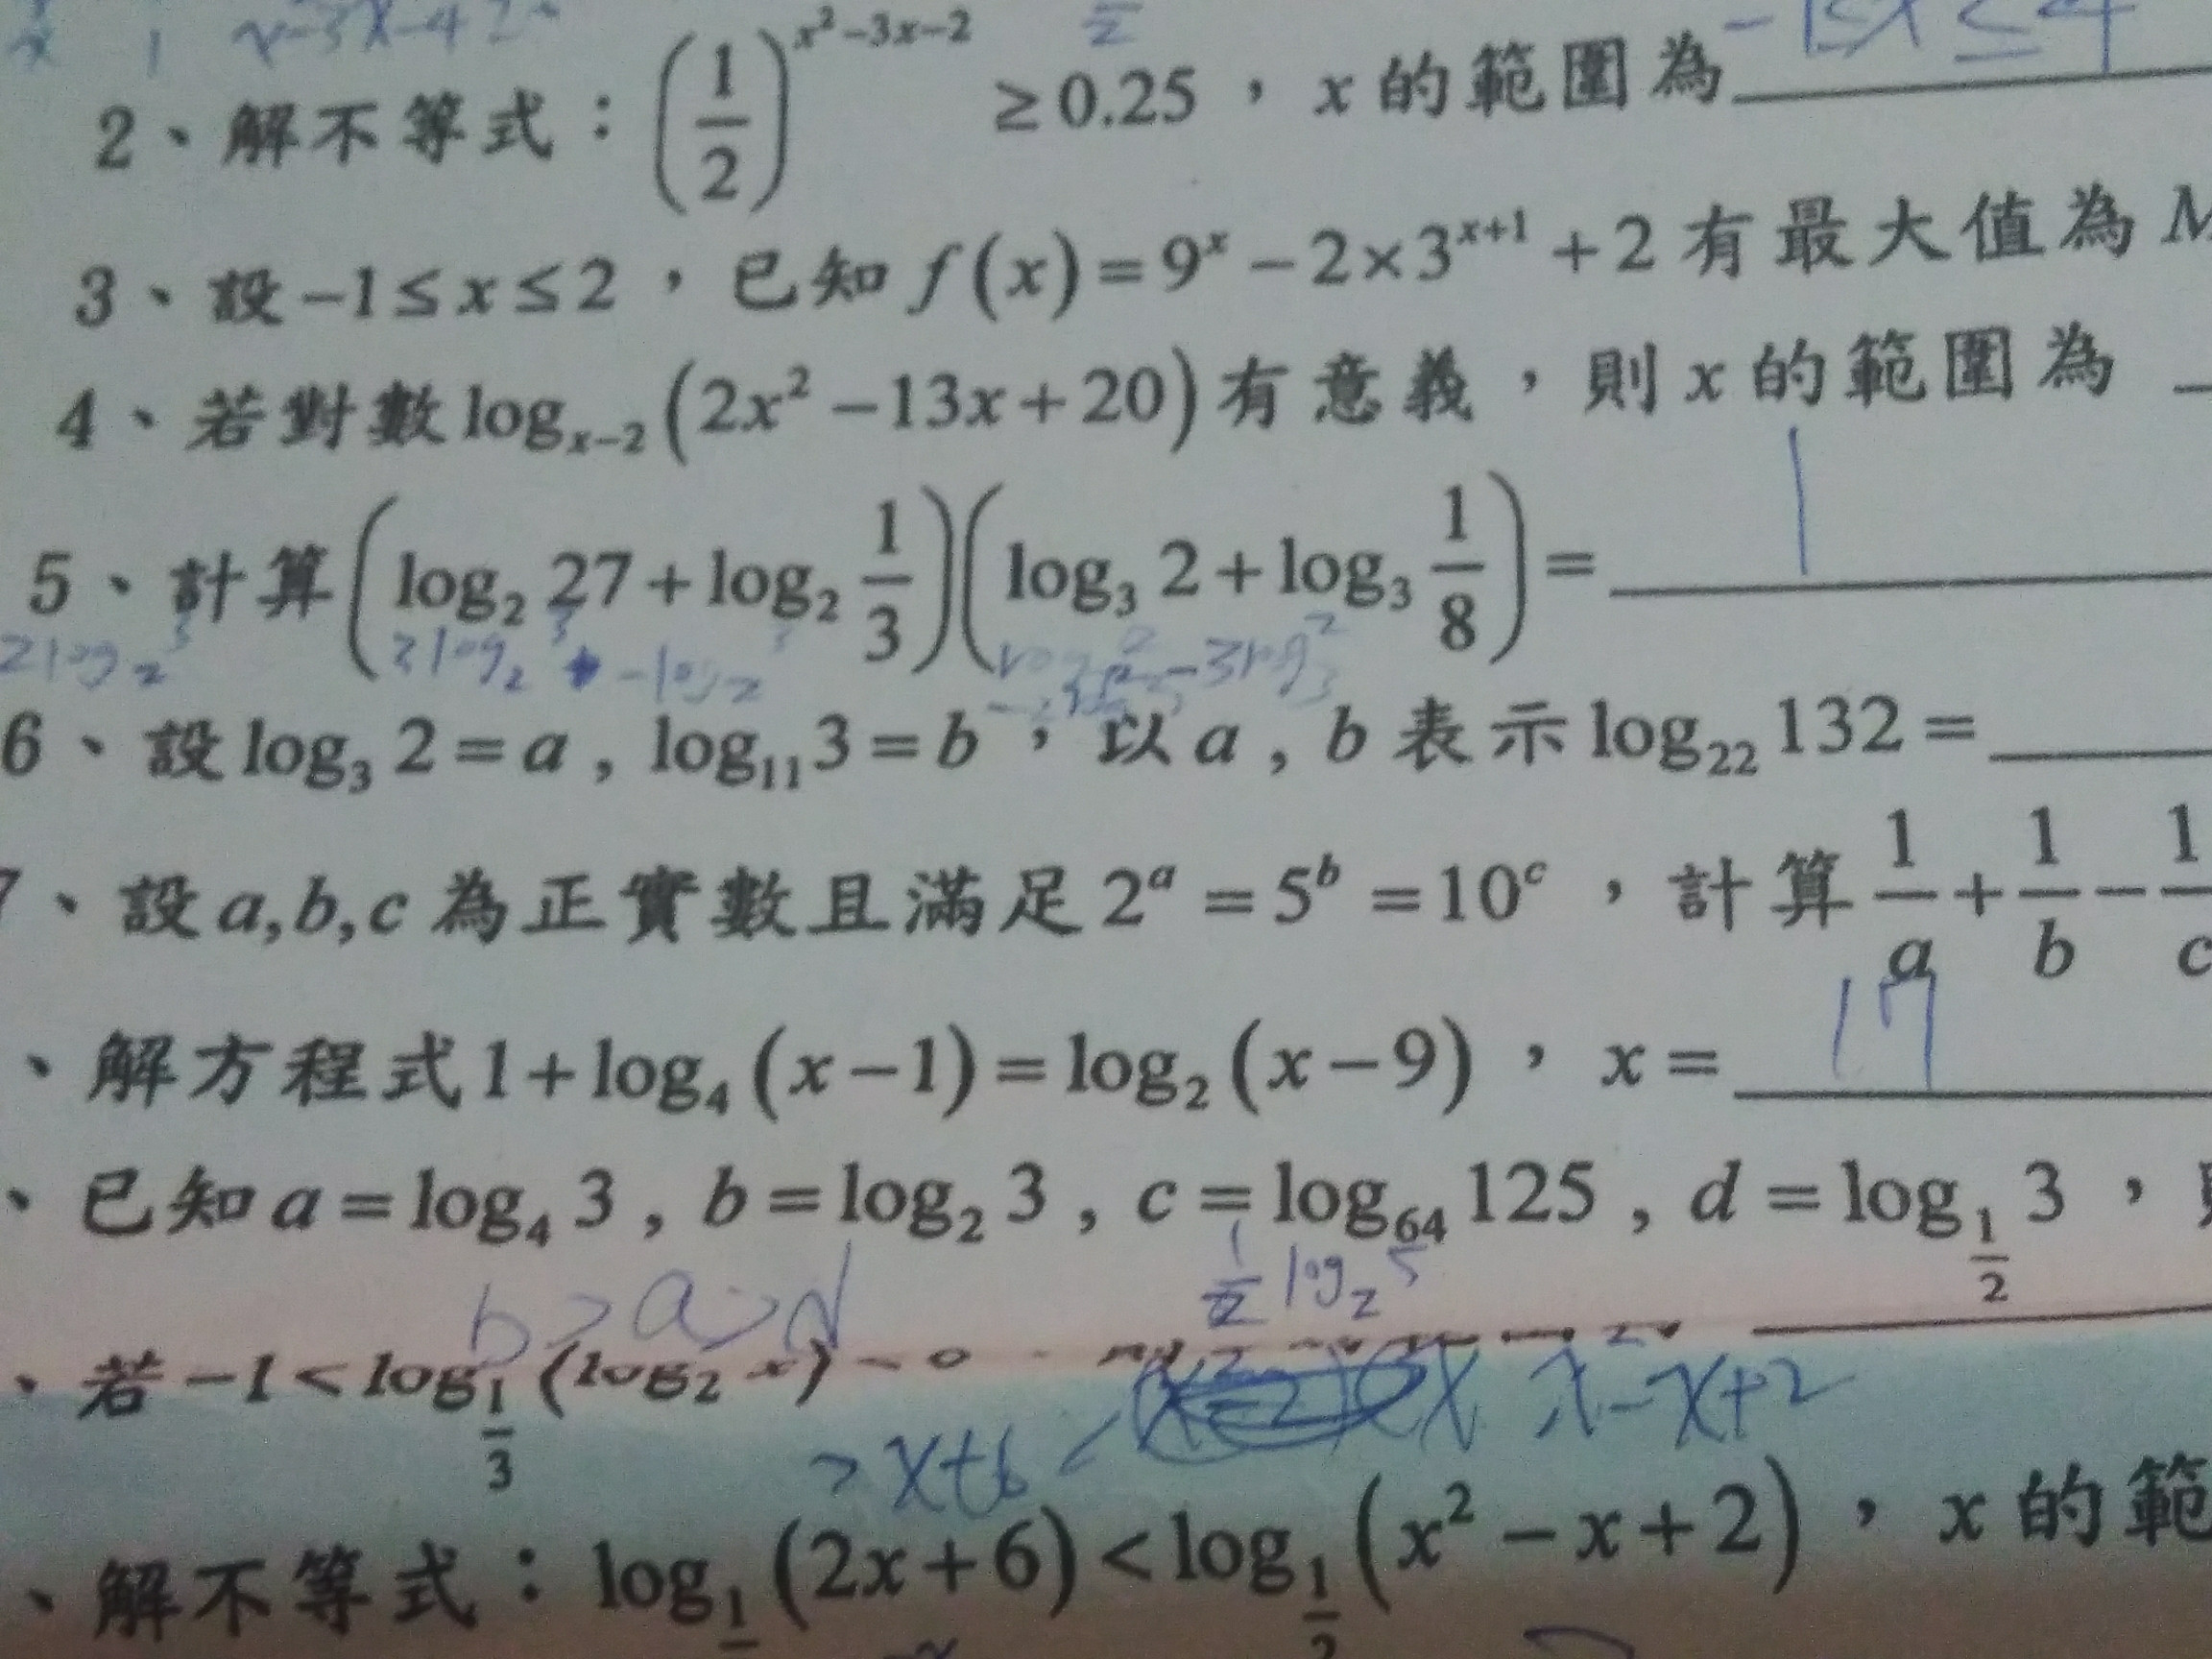 x²-3x-4≥
2、解不等式：(1/2)^(x²-3x-2) ≥0.25，x的範圍為 -1≤x≤4
3、設-1≤x≤2，已知f(x)=9^x-2×3^(x+1)+2有最大值為M
4、若對數log_(x-2)(2x²-13x+20)有意義，則x的範圍為
5、計算(log₂27+log₂ 1/3)(log₃2+log₃ 1/8)= 1
2log₂3 3log₂3 -log₂3 -3log₃2
6、設log₃2=a, log₁₁3=b，以a, b表示log₂₂132=
、設a,b,c為正實數且滿足2^a=5^b=10^c，計算 1/a + 1/b - 1/c
、解方程式1+log₄(x-1)=log₂(x-9)，x= 17
、已知a=log₄3, b=log₂3, c=log₆₄125, d=log_(1/2) 3，
b>a>d 1/2 log₂5
、若-1<log_(1/3)(log₂x)
>x+6 x²-x+2
、解不等式：log_1(2x+6)<log_(1/2)(x²-x+2)，x的範